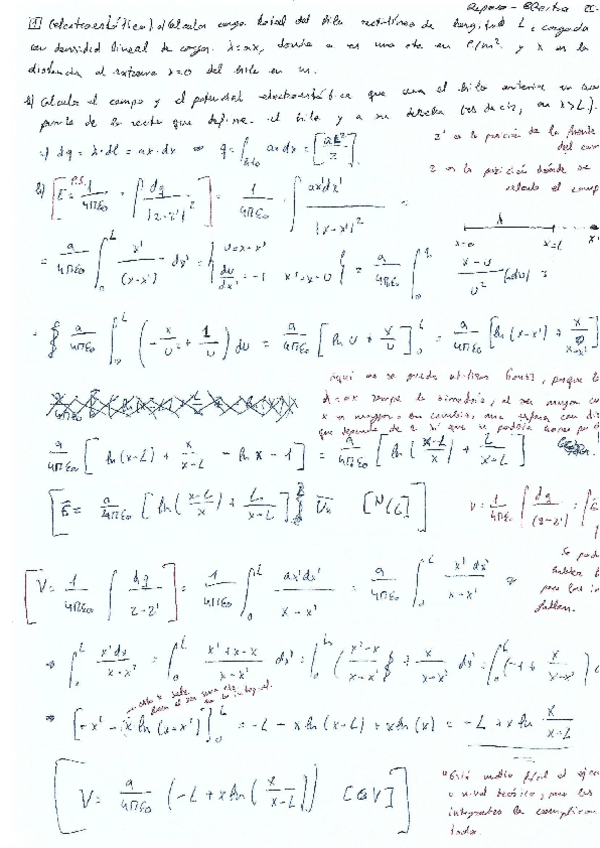 Repaso - Electro
1 (electroestática) a) Calcular carga total del hilo rectilíneo de longitud L, cargado
con densidad lineal de carga λ=ax, donde a es una cte en C/m² y x es la
distancia al extremo x=0 del hilo en m.
b) Calcula el campo y el potencial electroestático que crea el hilo anterior en
punto de la recta que define el hilo y a su derecha (es decir, en x>L).
z' es la posición de la fuente
del
a) dq = λ·dl = ax·dx ⇒ q = ∫ ax dx = [aL²/2]
z es la posición dónde se
calcula el campo
b) [E = P.S. 1/4πε₀ · ∫ dq/|z-z'|²] = 1/4πε₀ · ∫ ax'dx'/|x-x'|² =
λ
x=0 x=L
= a/4πε₀ ∫₀ᴸ x'/(x-x')² dx' = { u=x-x' du/dx' = -1 x'=x-u } = a/4πε₀ ∫₀ᴸ x-u/u² (-du) =
= a/4πε₀ ∫₀ᴸ (-x/u² + 1/u) du = a/4πε₀ [ln u + x/u]₀ᴸ = a/4πε₀ [ln(x-x') + x/x-x'
Aquí no se puede utilizar Gauss, porque
λ=ax rompe la simetría, al ser mayor
x es mayor. en cambio, una esfera con
que depende de r sí que se podría
a/4πε₀ [ln(x-L) + x/x-L - ln x - 1] = a/4πε₀ [ln(x-L/x) + L/x-L]
[E⃗ = a/4πε₀ [ln(x-L/x) + L/x-L] u⃗ₓ [N/C]]
V = 1/4πε₀ ∫ dq/(z-z') = ∫
Se
[V = 1/4πε₀ ∫ dq/z-z'] = 1/4πε₀ ∫₀ᴸ ax'dx'/x-x' = a/4πε₀ ∫₀ᴸ x'dx'/x-x' ⇒
⇒ ∫₀ᴸ x'dx/x-x' = ∫₀ᴸ x'+x-x/x-x' dx' = ∫₀ᴸ (x'-x/x-x' + x/x-x' dx' = ∫₀ᴸ (-1 + x/x-x')
⇒ [-x' - x ln(x-x')]₀ᴸ = -L - x ln(x-L) + x ln(x) = -L + x ln x/x-L
[V = a/4πε₀ (-L + x ln(x/x-L)) [V]]
a nivel teórico, pero las
integrales la complican
toda.